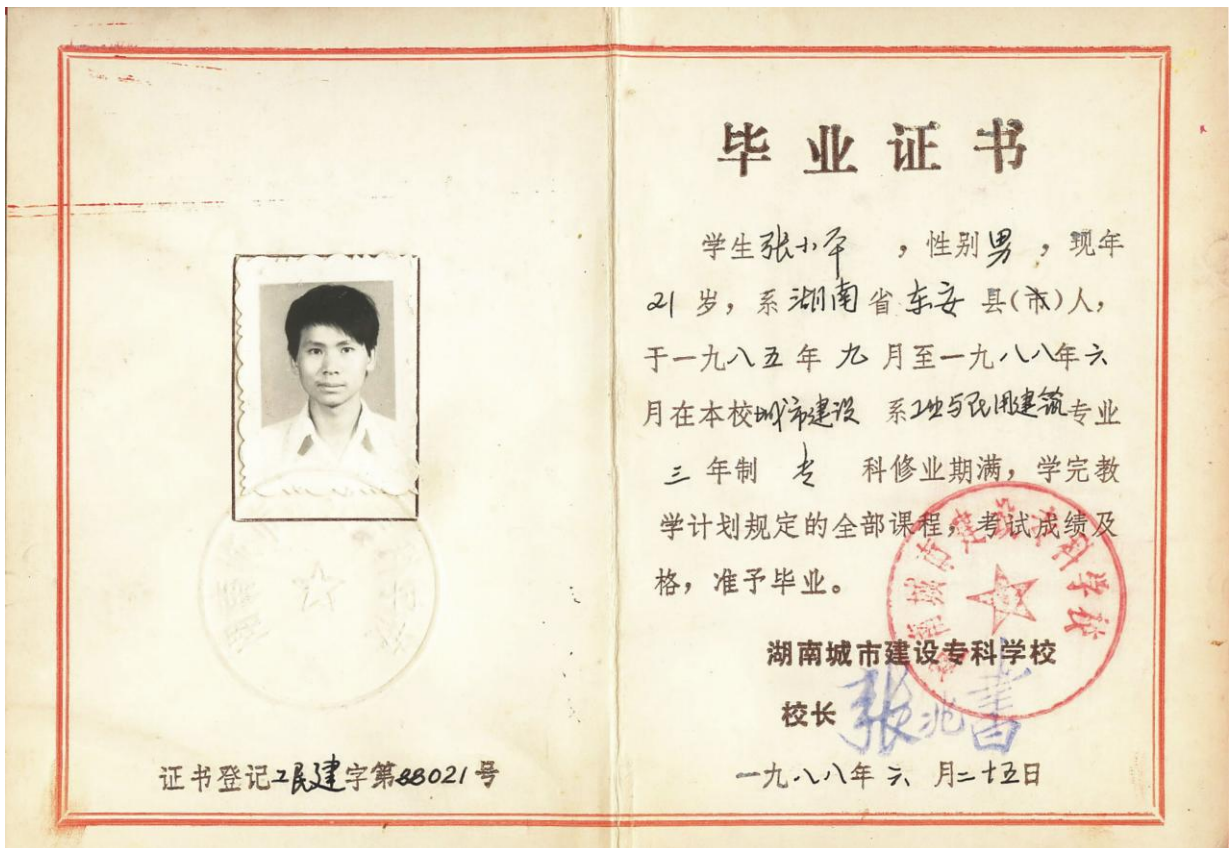 毕业证书
学生张小平，性别男，现年
21岁，系湖南省东安县(市)人，
于一九八五年九月至一九八八年六
月在本校城市建设系工业与民用建筑专业
三年制专科修业期满，学完教
学计划规定的全部课程，考试成绩及
格，准予毕业。
湖南城市建设专科学校
湖南城市建设专科学校
校长 张兆书
一九八八年六月二十五日
证书登记工民建字第88021号